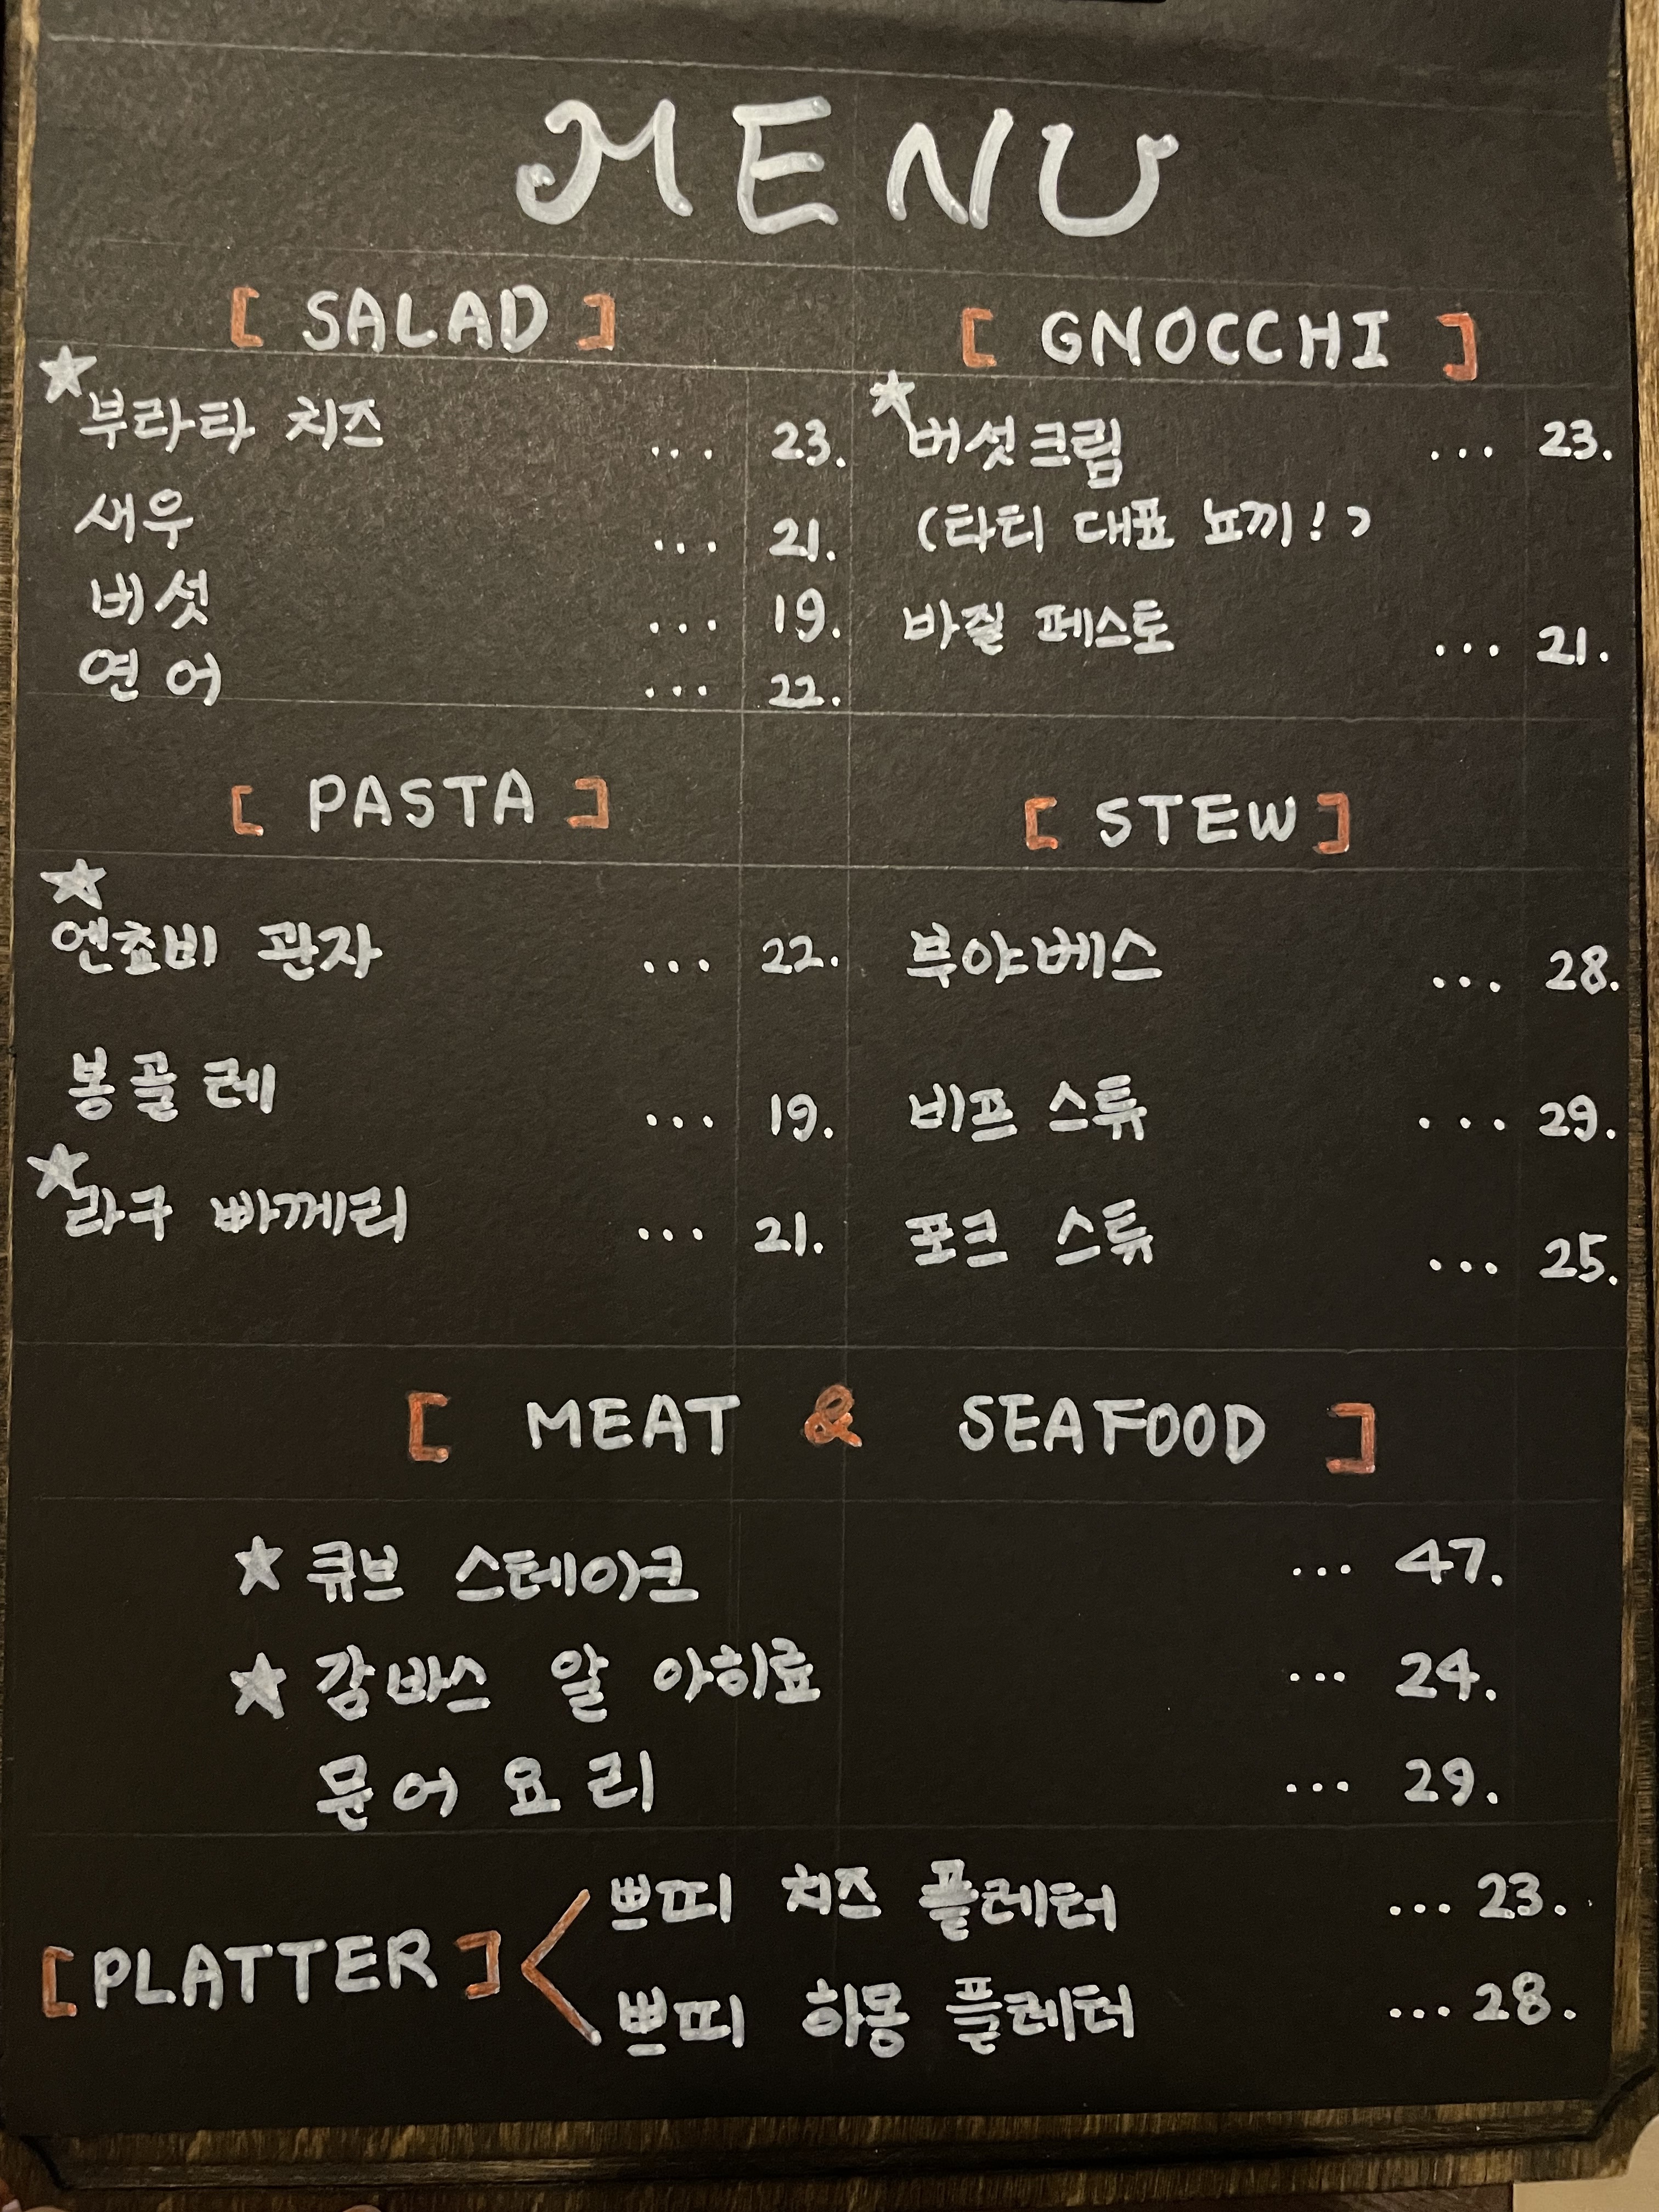 MENU
[ SALAD ]
★부라타 치즈 ... 23.
새우 ... 21.
버섯 ... 19.
연어 ... 22.
[ GNOCCHI ]
★버섯크림 ... 23.
(타티 대표 뇨끼!)
바질 페스토 ... 21.
[ PASTA ]
★
엔쵸비 관자 ... 22.
봉골레 ... 19.
★라구 빠께리 ... 21.
[ STEW ]
부야베스 ... 28.
비프 스튜 ... 29.
포크 스튜 ... 25.
[ MEAT & SEAFOOD ]
★ 큐브 스테이크 ... 47.
★ 감바스 알 아히료 ... 24.
문어 요리 ... 29.
[PLATTER]
쁘띠 치즈 플레터 ... 23.
쁘띠 하몽 플레터 ... 28.